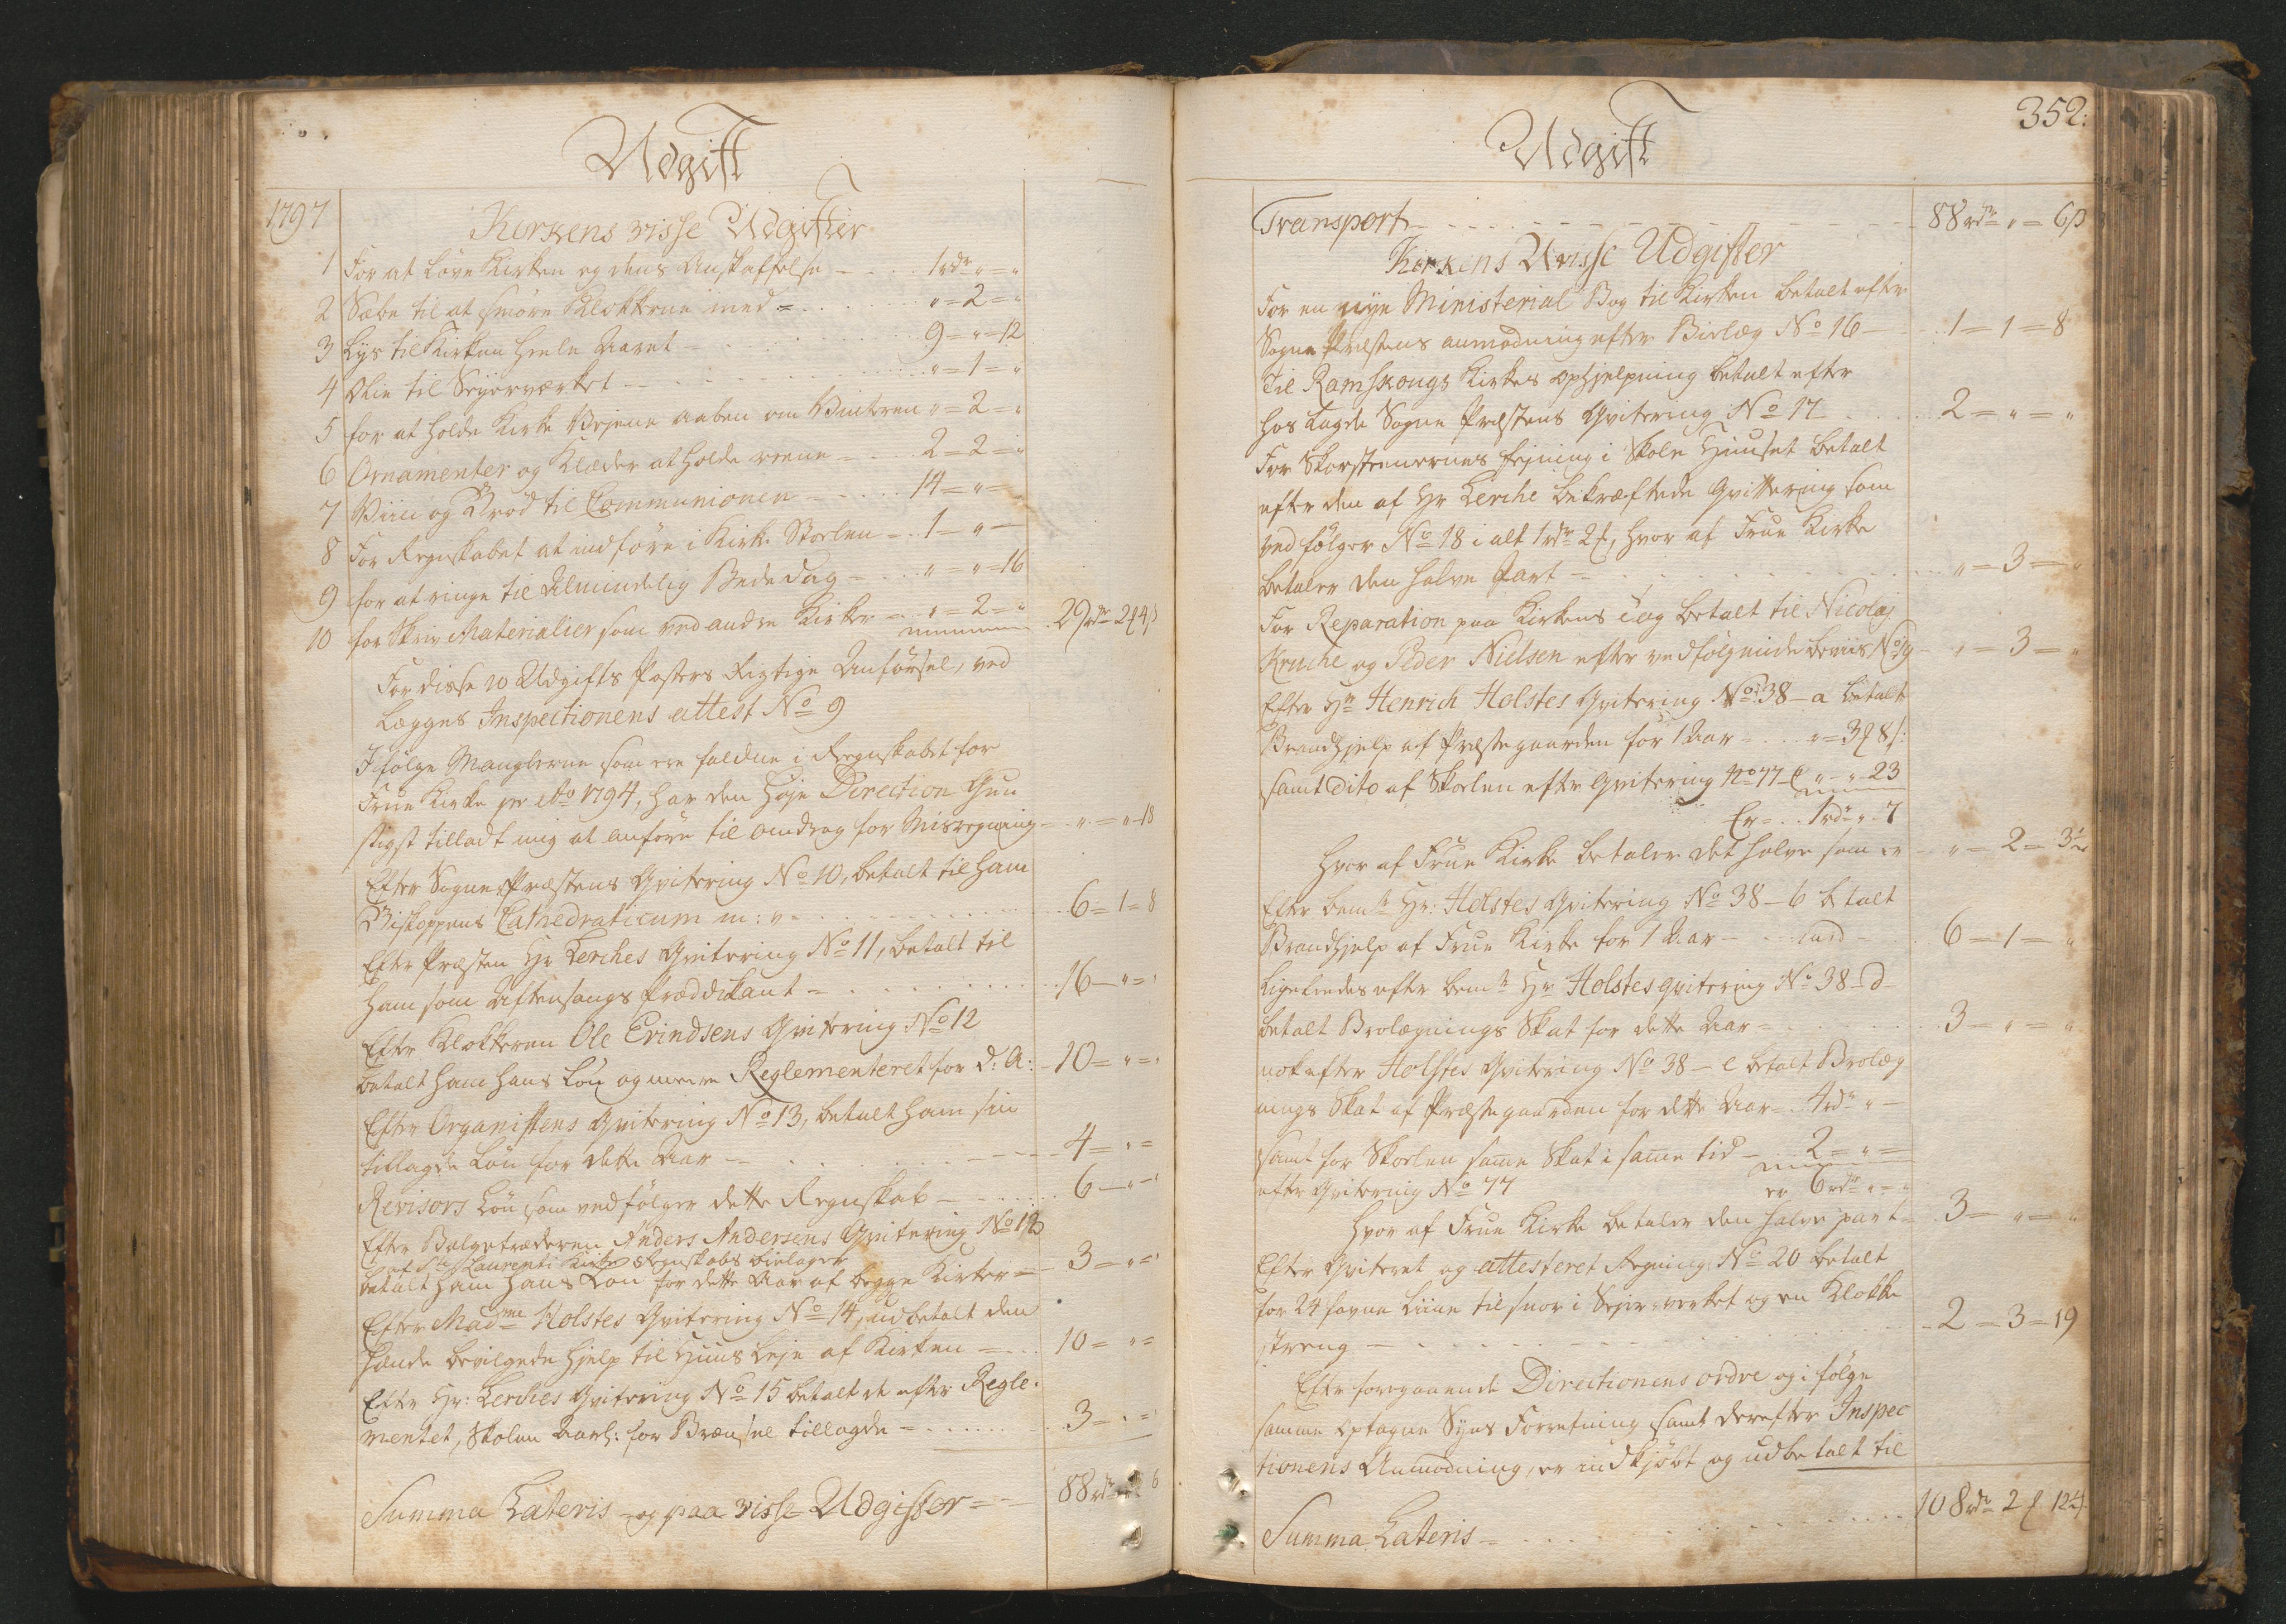 Udgift
1797
Kirkens visse Udgifter
1 For at love Kirken og dens Anskaffelse - - 1 rdr „ = „
2 Sæbe til at smøre Klokkerne med = . . „ = 2 = „
3 Lys til Kirken heele Aaret - 9 = „ = 12
4 Olie til Seyerværket - - „ = 1 = „
5 for at holde Kirke Vejene aaben om Vinteren „ = 2 = „
6 Ornamenter og Klæder at holde reene - 2 = 2 = „
7 Viin og Brød til Communionen - 14 = „ = „
8 For Regnskabet at indføre i Kirke Stoelen - 1 - „ -
9 for at ringe til Almindelig Bededag - „ = „ = 16
10 for Skriv Materialier som ved andre Kirker - „ = 2 = „ 29 rdr 2 ß 4 s
For disse 10 Udgifts Posters Rigtige Anførsel, ved
Lægges Inspectionens attest No 9
Ifølge Manglerne som ere faldne i Regnskabet for
Frue Kirke pr Ao 1794, har den Høje Direction Gun
stigst tilladt mig at anføre til andrag for Misregning - „ = „ - 18
Efter Sogne Præstens Qvitering No 10, betalt til ham
Biskoppens Cathedraticum m: v - 6 = 1 = 8
Efter Præsten Hr Lerches Qvitering No 11, betalt til
ham som Aftensangs Præddikant - 16 - „ = „
Efter Klokkeren Ole Evindsens Qvitering No 12
betalt ham hans Løn og meere Reglementeret for d: A: - 10 = „ = „
Efter Organistens Qvitering No 13, betalt ham sin
tillagde Løn for dette Aar - 4 = „ =
Revisors Løn som vedfølger dette Regnskab - 6 - „ - „
Efter Balgetræderen Anders Andersens Qvitering No 13
af Ste Laurenti Kirkes Regnskabs bielager
betalt ham hans Løn for dette Aar af begge Kirker - 3 - „ = „
Efter Madme Holstes Qvitering No 14, udbetalt den
hende bevilgede Hjelp til Huus Leje af Kirken - 10 = „ =
Efter Hr: Lerches Qvitering No 15 betalt de efter Regle-
mentet, Skolen Aarl: for Brænsel tillagde - 3 - „ = „
Summa Lateris og paa visse Udgifter = - 88 rdr „ 6
352:
Udgift
Transport - 88 rdr „ = 6 ß
Kirkens Uvisse Udgifter
For en nye Ministerial Bog til Kirken betalt efter
Sogne Præstens anmodning efter Bielæg No 16 - 1 = 1 = 8
Til Ramskougs Kirkes ophjelpning betalt efter
hos Lagde Sogne Præstens Qvitering No 17 2 = „ = „
For Skorsteenernes fejning i Skole Huuset betalt
efter den af Hr Lerche bekræftede Qvittering som
vedfølger No 18 i alt 1 rdr 2 ß, hvor af Frue Kirke
betaler den halve Part - „ = 3 = „
For Reparation paa Kirkens Tag betalt til Nicolaj
Kruche og Peder Nielsen efter vedfølgende beviis No 19 - „ = 3 = „
Efter Hr Henrich Holstes Qvitering No 38 - a betalt
Brandhjelp af Præstegaarden for 1 Aar - „ = 3 ß 8 s:
samt dito af Skoelen efter Qvitering No 77 - „ - „ 23
Er - 1 rdr „ - 7
hvor af Frue Kirke betaler det halve som er - „ = 2 = 3½
Efter bemte Hr: Holstes Qvitering No 38 - b betalt
Brandhjelp af Frue Kirke for 1 Aar - 6 = 1 = „
Ligeledes efter bemte Hr Holstes qvitering No 38 - d
betalt Brolægnings Skat for dette Aar - 3 = „ = „
nok efter Holstes Qvitering No 38 - e betalt Brolæg
nings Skat af Præstegaarden for dette Aar - 4 rdr „ -
samt for Skoelen samme Skat i samme tid - 2 = „ =
efter Qvitering No 77 er 6 rdr „ = „
hvor af Frue Kirke betaler den halve part - 3 = „ = „
Efter Qviteret og attesteret Regning No 20 betalt
for 24 favne Liine til snor i Sejer-verket og en Klokke
streng - 2 = 3 = 19
Efter foregaaende Directionens ordre og i følge
samme optagne Syns Forretning samt derefter Inspec
tionens Anmodning, er indkjøbt og udbetalt til
Summa Lateris - 108 rdr 2 ß 12½